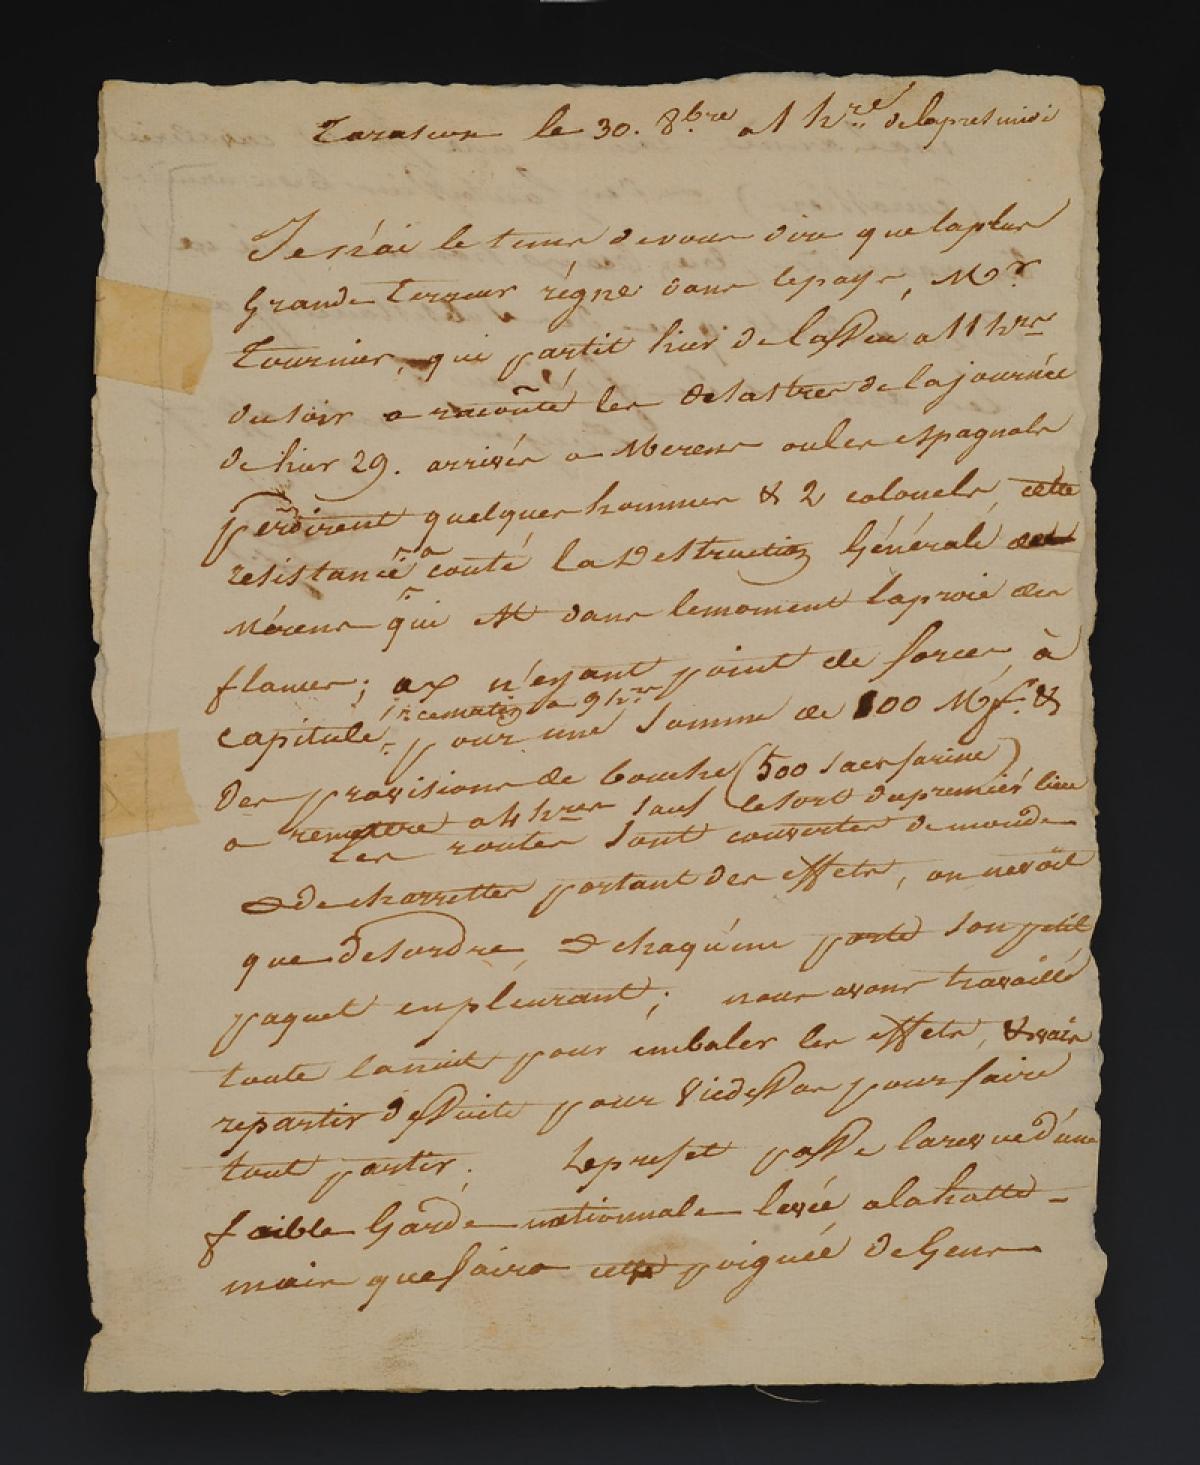 Tarascon le 30. 8.bre a 1 h.re de lapres midi
Je n'ai le tems de vous dire que la plus
Grande Terreur régne dans le pays, M.r
Tournier, qui partit hier de l'asPre a 11 h.res
du soir a raconté les desastres de la journée
de hier 29. arrivés a Merens ou les espagnols
perdirent quelques hommes & 2 colonels, cette
resistance a couté la Destruction Générale de
Mérens qui est dans le moment la proie des
flames; ax n'eyant point de forces, à
capitulé, ce matin a 9 h.res
pour une somme de 100 M f. &
Des provisions de bouche (500 sacs farine)
a remettre a 4 h.res sauf le sort du premier lieu
Les routes sont couvertes de monde
& de charrettes portant des effets, on ne voit
que desordre, & chaqu'un porte son petit
paquet en pleurant; nous avons travaillé
toute la nuit pour embaler les effets, & vais
repartir de suite pour Vicdessos pour faire
tout partir. Le prefet passe la revue d'une
faible Garde nationnale levée a la hatte
mais que faire cette poignée de Gens